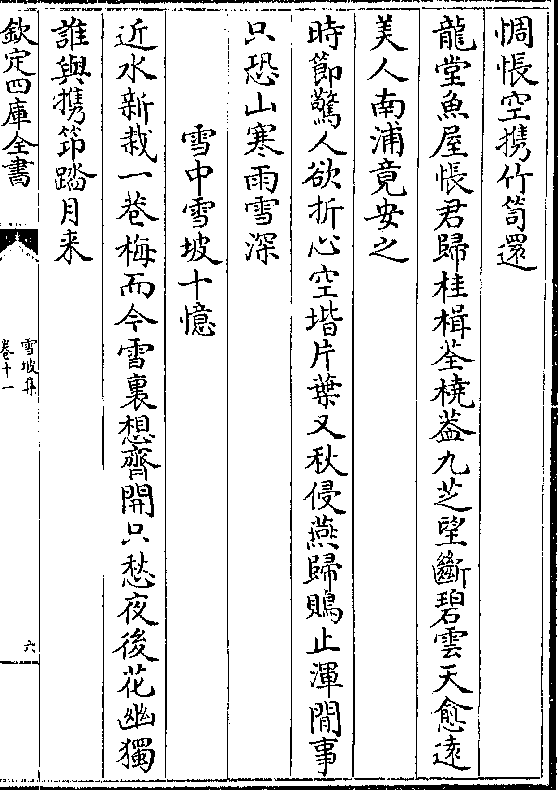 惆悵空携竹笥還
龍堂魚屋悵君歸桂楫荃橈葢九芝望斷碧雲天愈遠
美人南浦竟安之
時節驚人欲折心空堦片葉又秋侵燕歸鵙止渾閒事
只恐山寒雨雪深
雪中雪坡十憶
近水新栽一巷梅而今雪裏想齊開只愁夜後花幽獨
誰與携笻踏月来
欽定四庫全書
雪坡集
卷十一
六